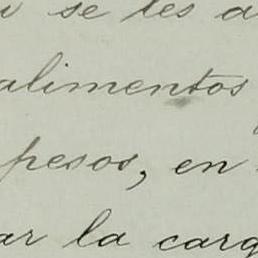 se les a
alimentos
pesos, en
ar la carg